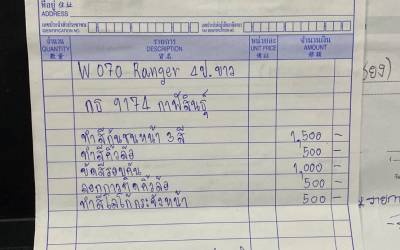 ที่อยู่
ADDRESS
เลขประจำตัวประชาชน
IDENTIFICATION NO.
เลขประจำตัวผู้เสียภาษี
IDENTIFICATION NO.
จำนวน รายการ หน่วยละ จำนวนเงิน
QUANTITY DESCRIPTION UNIT PRICE AMOUNT
數量 貨名 價銀
W 070 Ranger 4ป. ขาว
กธ 9174 กาฬสินธุ์
ทำสีกันชนหน้า 3 สี 1,500 -
ทำสีคิ้วล้อ 500 -
ขัดสีรอบคัน 1,000 -
ลอกกาวติดคิ้วล้อ 500 -
ทำสีโลโก้กระจังหน้า 500 -